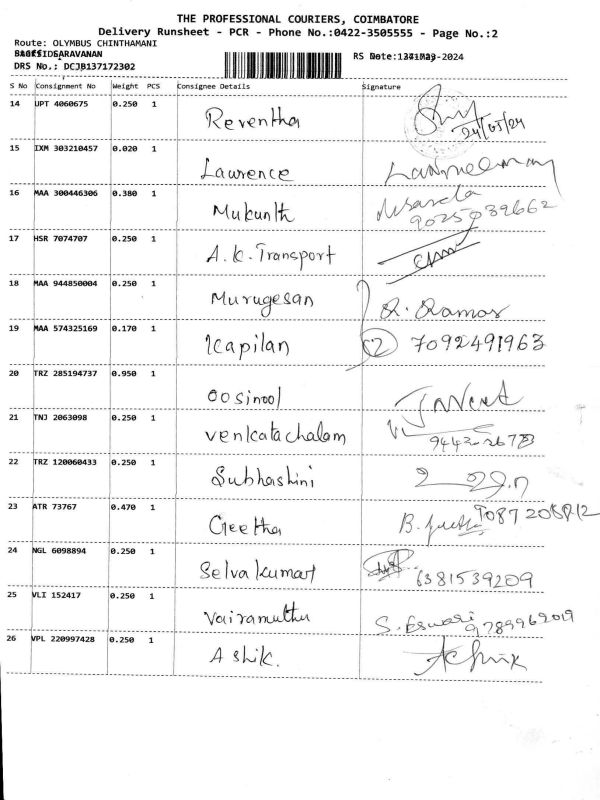 THE PROFESSIONAL COURIERS, COIMBATORE
Delivery Runsheet - PCR - Phone No.:0422-3505555 - Page No.:2
Route: OLYMBUS CHINTHAMANI
SARAVANAN
DRS No.: DCJB137172302
RS Date: -2024
S No Consignment No Weight PCS Consignee Details Signature
14 UPT 4060675 0.250 1 Reventha 24/05/24
15 IXM 303210457 0.020 1 Lawrence
16 MAA 300446306 0.380 1 Mukunth 9025039662
17 HSR 7074707 0.250 1 A.K. Transport
18 MAA 944850004 0.250 1 Murugesan
19 MAA 574325169 0.170 1 Kapilan (2) 7092491963
20 TRZ 285194737 0.950 1 oosinool
21 TNJ 2063098 0.250 1 Venkatachalam
22 TRZ 120060433 0.250 1 Subhashini
23 ATR 73767 0.470 1 Geetha B.
24 NGL 6098894 0.250 1 Selvakumar 6381539209
25 VLI 152417 0.250 1 Vairamuthu S. Eswari 9789962019
26 VPL 220997428 0.250 1 Ashik. Ashik